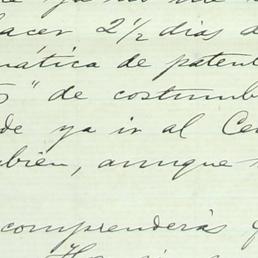 hacer 2½ días d
mática de patent
" de costumb
de ya ir al Cen
mbién, aunque
comprenderás q